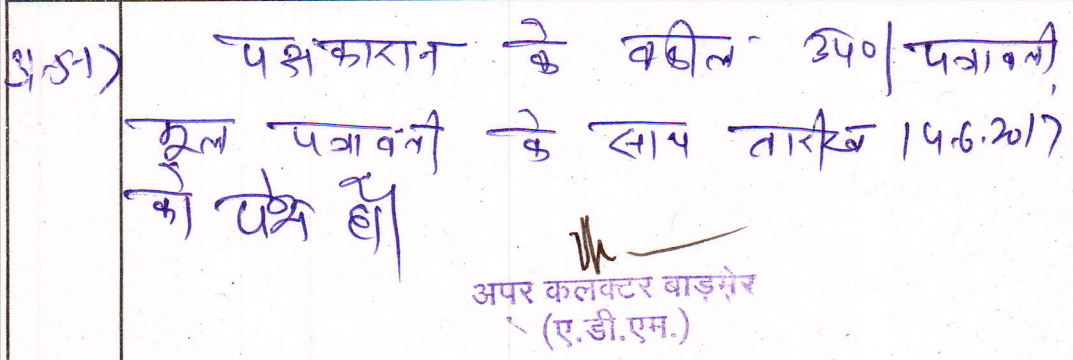 पक्षकारान के वकील उप०। पत्रावली
मूल पत्रावली के साथ तारीख 14.6.2017
को पेश हो।
अपर कलक्टर बाड़मेर
(ए.डी.एम.)